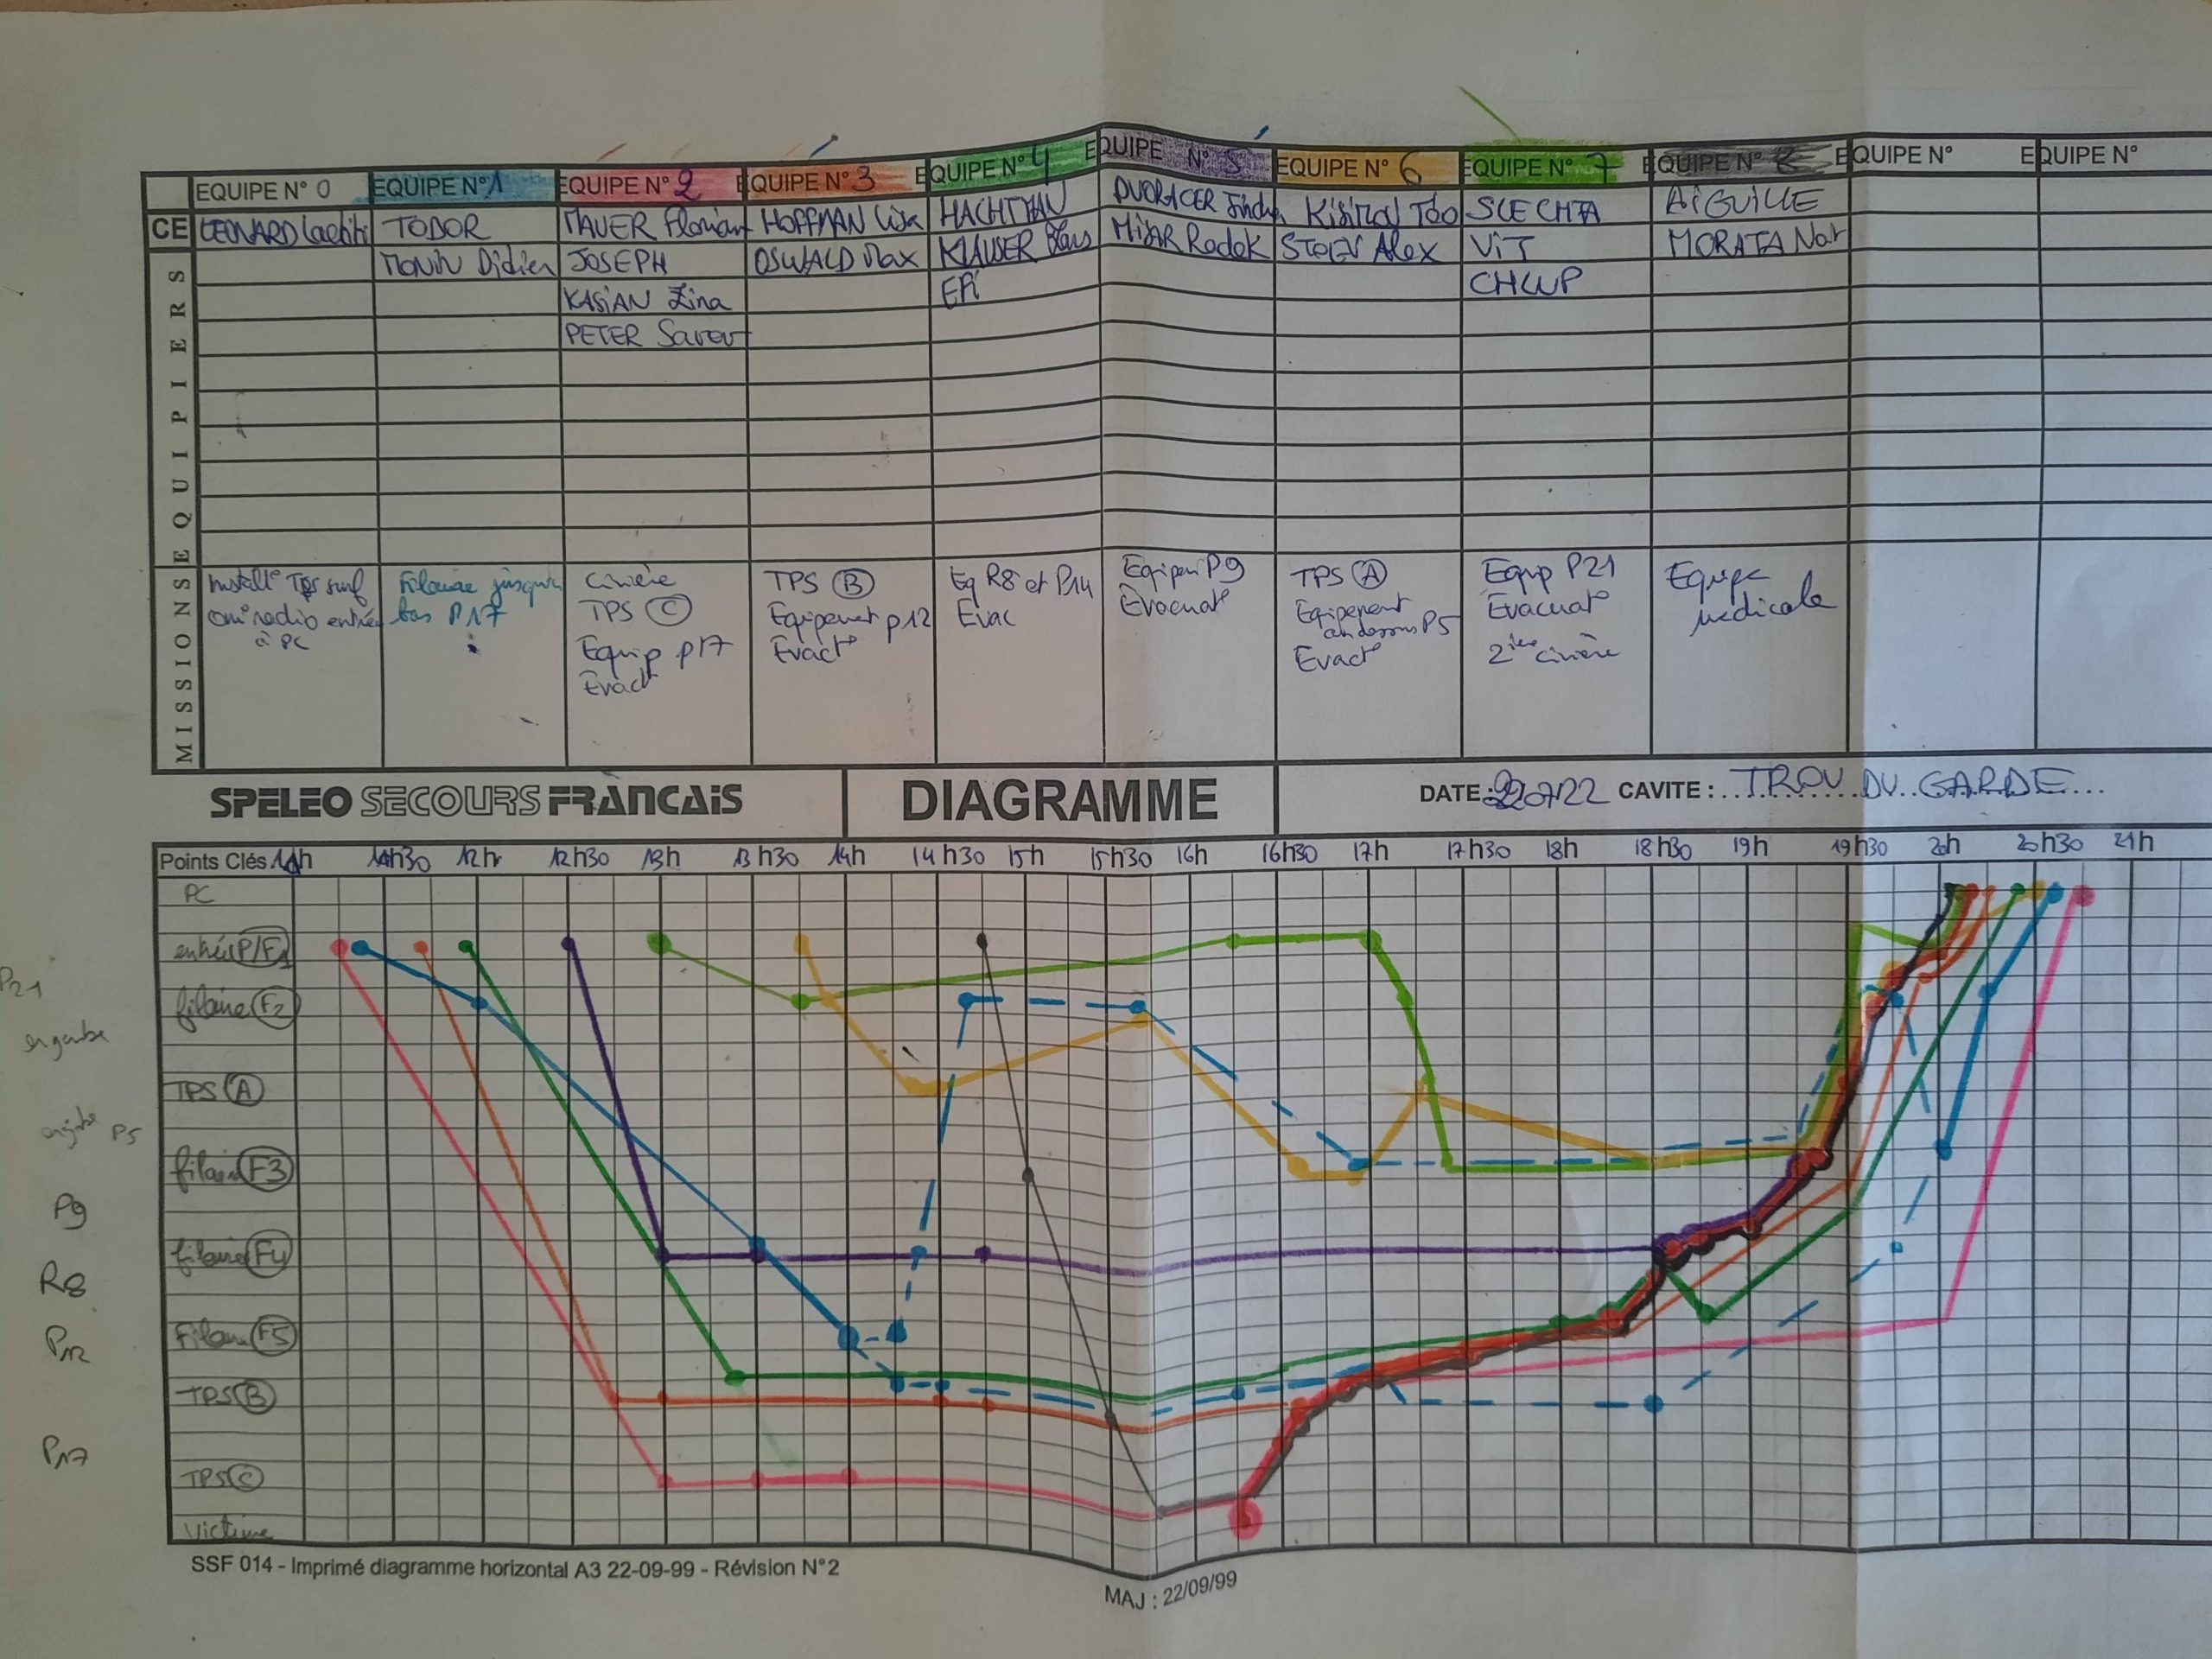 EQUIPE N° 0 EQUIPE N° 1 EQUIPE N° 2 EQUIPE N° 3 EQUIPE N° 4 EQUIPE N° 5 EQUIPE N° 6 EQUIPE N° 7 EQUIPE N° 8 EQUIPE N° EQUIPE N°
CE LEONARD TODOR MAUER Florian HOFFMAN Lisa HACHTMAN KISIMOV SLECHTA AiGUILLE
MONIN Didier JOSEPH OSWALD Max KLAUSER Klaus MISAR Radek STOEV Alex ViT MORATA
KASIAN Zina EPi CHLUP
PETER
EQUIPIERS
MISSIONS
Install° TPS surf
radio entrée
à PC
Filaire jusqu'au
bas P17
Civière
TPS C
Equip P17
Evac°
TPS B
Equipement P12
Evac°
Eq R8 et P14
Evac
Equipem P9
Evacuat°
TPS A
Equipement
au dessous P5
Evac°
Equip P21
Evacuat°
2ième civière
Equipe
médicale
SPELEO SECOURS FRANCAIS
DIAGRAMME
DATE : CAVITE : TROU DU GARDE
Points Clés 11h 11h30 12h 12h30 13h 13h30 14h 14h30 15h 15h30 16h 16h30 17h 17h30 18h 18h30 19h 19h30 20h 20h30 21h
PC
entrée P/F1
P21
filaire F2
TPS A
P5
filaire F3
P9
filaire F4
R8
Filaire F5
P12
TPS B
P17
TPS C
Victime
SSF 014 - Imprimé diagramme horizontal A3 22-09-99 - Révision N°2
MAJ : 22/09/99